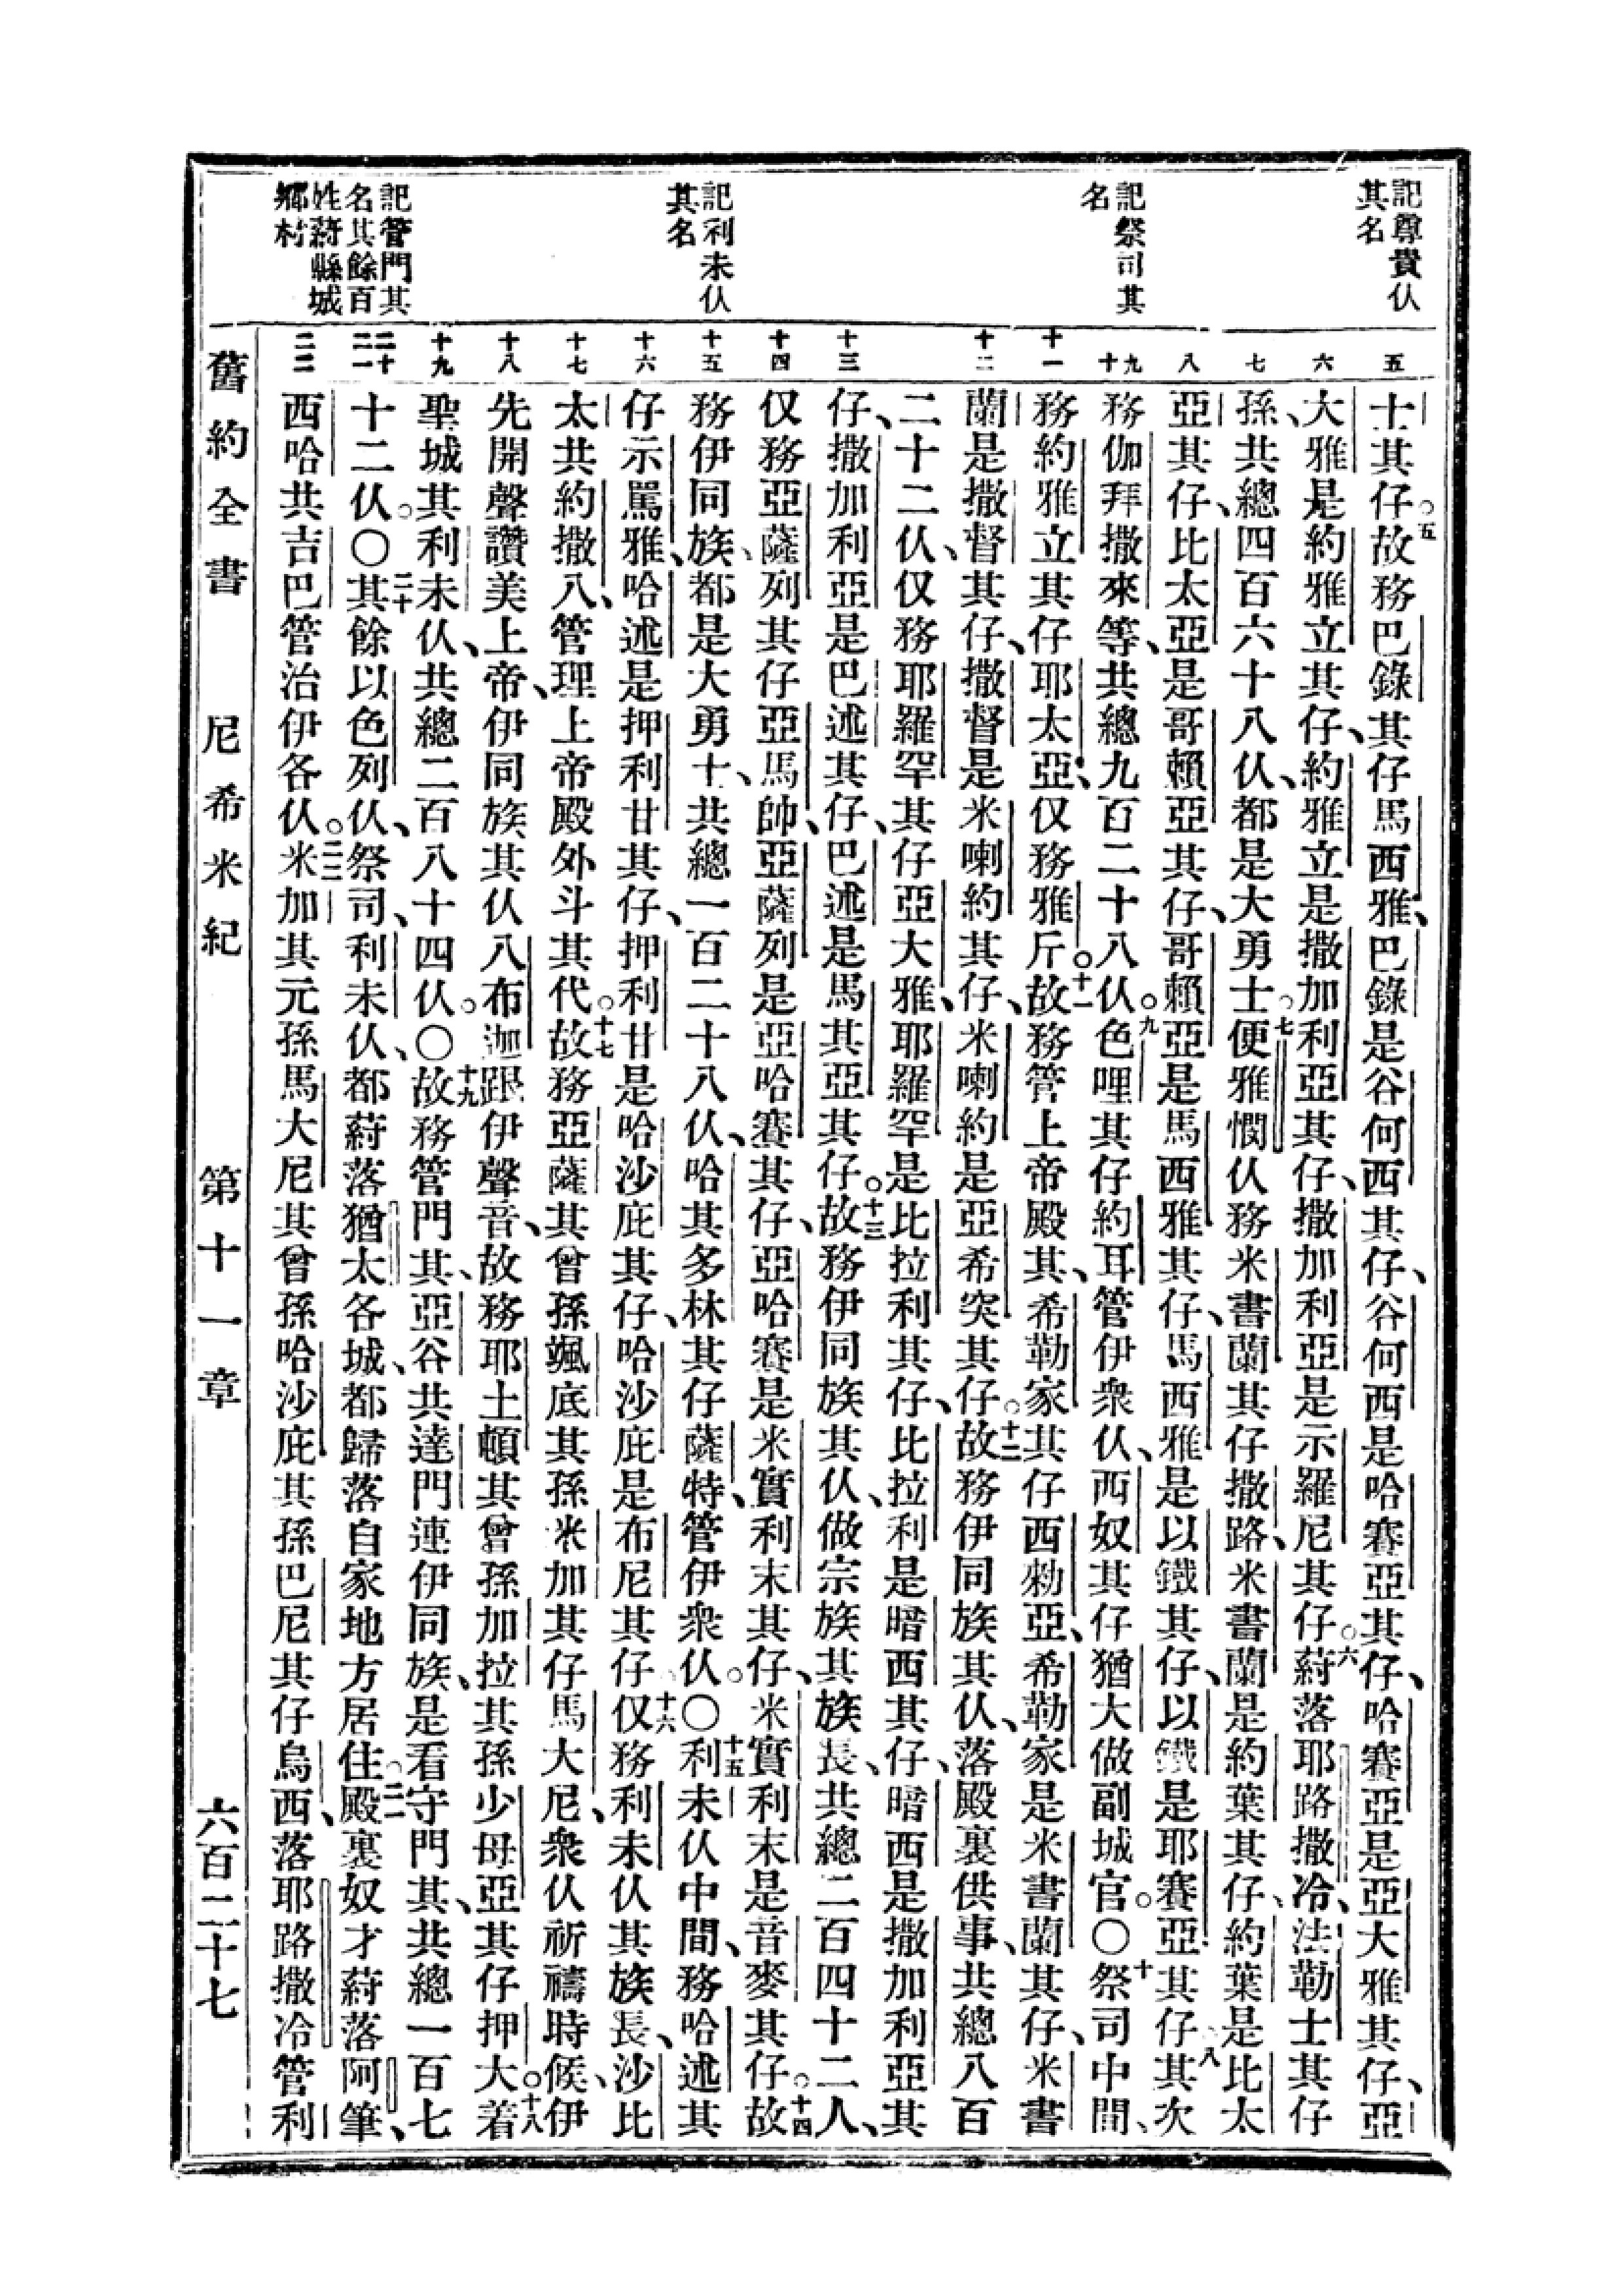 記尊貴仈
其名
記祭司其
名
記利未仈
其名
記管門其
名其餘百
姓蒔縣城
鄉村
五
六
七
八
九
十
十一
十二
十三
十四
十五
十六
十七
十八
十九
二十
二一
二二
士其仔。五故務巴錄其仔馬西雅、巴錄是谷何西其仔、谷何西是哈賽亞其仔、哈賽亞是亞大雅其仔、亞
大雅是約雅立其仔、約雅立是撒加利亞其仔、撒加利亞是示羅尼其仔。六蒔落耶路撒冷、法勒士其仔
孫、共總四百六十八仈、都是大勇士。七便雅憫仈務米書蘭其仔撒路、米書蘭是約葉其仔、約葉是比太
亞其仔、比太亞是哥賴亞其仔、哥賴亞是馬西雅其仔、馬西雅是以鐵其仔、以鐵是耶賽亞其仔、八其次
務伽拜撒來等、共總九百二十八仈。九色哩其仔約耳管伊衆仈、西奴其仔猶大做副城官。〇十祭司中間、
務約雅立其仔耶太亞、仅務雅斤。十一故務管上帝殿其、希勒家其仔西勑亞、希勒家是米書蘭其仔、米書
蘭是撒督其仔、撒督是米喇約其仔、米喇約是亞希突其仔。十二故務伊同族其仈、落殿裏供事、共總八百
二十二仈、仅務耶羅罕其仔亞大雅、耶羅罕是比拉利其仔、比拉利是暗西其仔、暗西是撒加利亞其
仔、撒加利亞是巴述其仔、巴述是馬其亞其仔。十三故務伊同族其仈、做宗族其族長、共總二百四十二人、
仅務亞薩列其仔亞馬帥、亞薩列是亞哈賽其仔、亞哈賽是米實利末其仔、米實利末是音麥其仔。十四故
務伊同族、都是大勇士、共總一百二十八仈、哈其多林其仔薩特、管伊衆仈。〇十五利未仈中間、務哈述其
仔示罵雅、哈述是押利甘其仔、押利甘是哈沙庇其仔、哈沙庇是布尼其仔。十六仅務利未仈其族長、沙比
太共約撒八、管理上帝殿外斗其代。十七故務亞薩其曾孫颯底其孫米加其仔馬大尼、衆仈祈禱時候、伊
先開聲讚美上帝、伊同族其仈八布迦跟伊聲音、故務耶土頓其曾孫加拉其孫少母亞其仔押大。十八着
聖城其利未仈、共總二百八十四仈。〇十九故務管門其、亞谷共達門連伊同族、是看守門其、共總一百七
十二仈。〇二十其餘以色列仈、祭司、利未仈、都蒔落猶太各城、都歸落自家地方居住。二一殿裏奴才蒔落阿筆、
西哈共吉巴管治伊各仈。二二米加其元孫馬大尼其曾孫哈沙庇其孫巴尼其仔烏西、落耶路撒冷管利
舊約全書 尼希米紀 第十一章 六百二十七